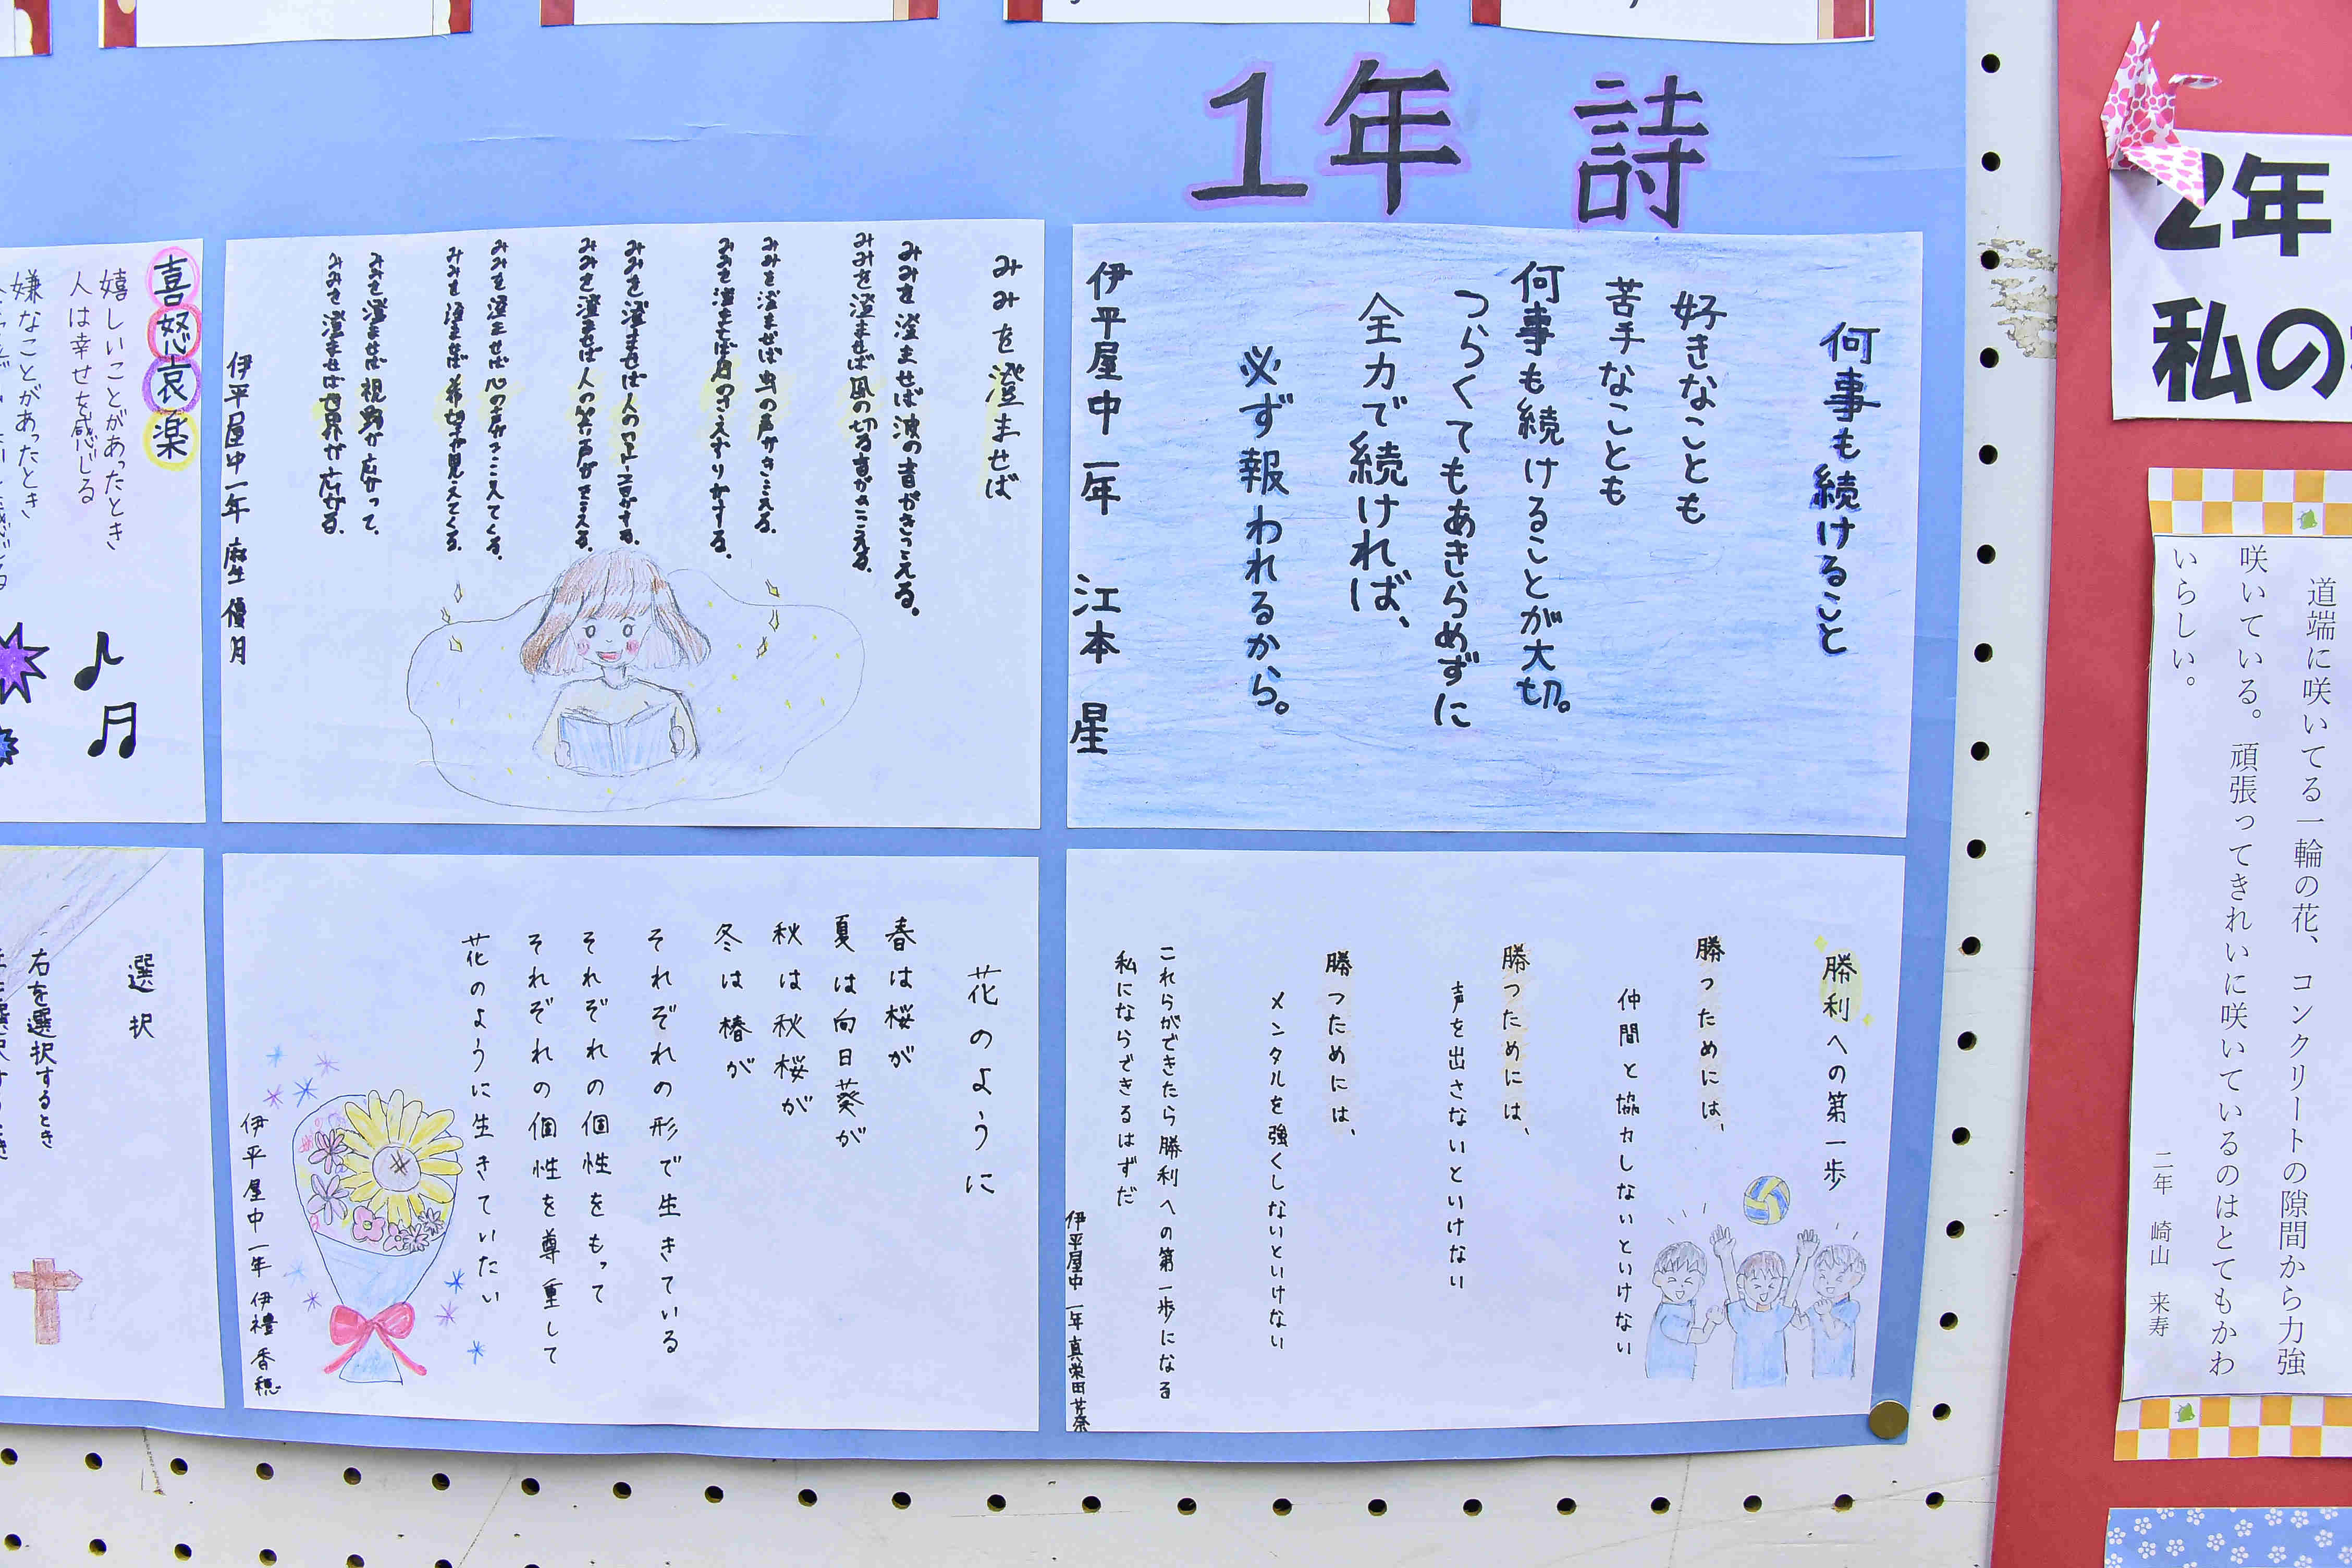 1年 詩
何事も続けること
好きなことも
苦手なことも
何事も続けることが大切。
つらくてもあきらめずに
全力で続ければ、
必ず報われるから。
伊平屋中 一年 江本 星
みみを澄ませば
みみを澄ませば波の音がきこえる。
みみを澄ませば風の切る音がきこえる。
みみを澄ませば虫の声がきこえる。
みみを澄ませば鳥のさえずりがする。
みみを澄ませば人の
みみを澄ませば人の笑い声がきこえる。
みみを澄ませば心の声がきこえてくる。
みみを澄ませば希望が見えてくる。
みみを澄ませば視野が広がって、
みみを澄ませば世界が広がる。
伊平屋中一年 麻生 優月
喜怒哀楽
嬉しいことがあったとき
人は幸せを感じる
嫌なことがあったとき
勝利への第一歩
勝つためには、
仲間と協力しないといけない
勝つためには、
声を出さないといけない
勝つためには、
メンタルを強くしないといけない
これらができたら勝利への第一歩になる
私にならできるはずだ
伊平屋中 一年 真栄田 芽奈
花のように
春は桜が
夏は向日葵が
秋は秋桜が
冬は椿が
それぞれの形で生きている
それぞれの個性をもって
それぞれの個性を尊重して
花のように生きていたい
伊平屋中一年 伊禮 香穂
選択
右を選択するとき
2年
私の
道端に咲いてる一輪の花、コンクリートの隙間から力強
咲いている。頑張ってきれいに咲いているのはとてもかわ
いらしい。
二年 崎山 来寿